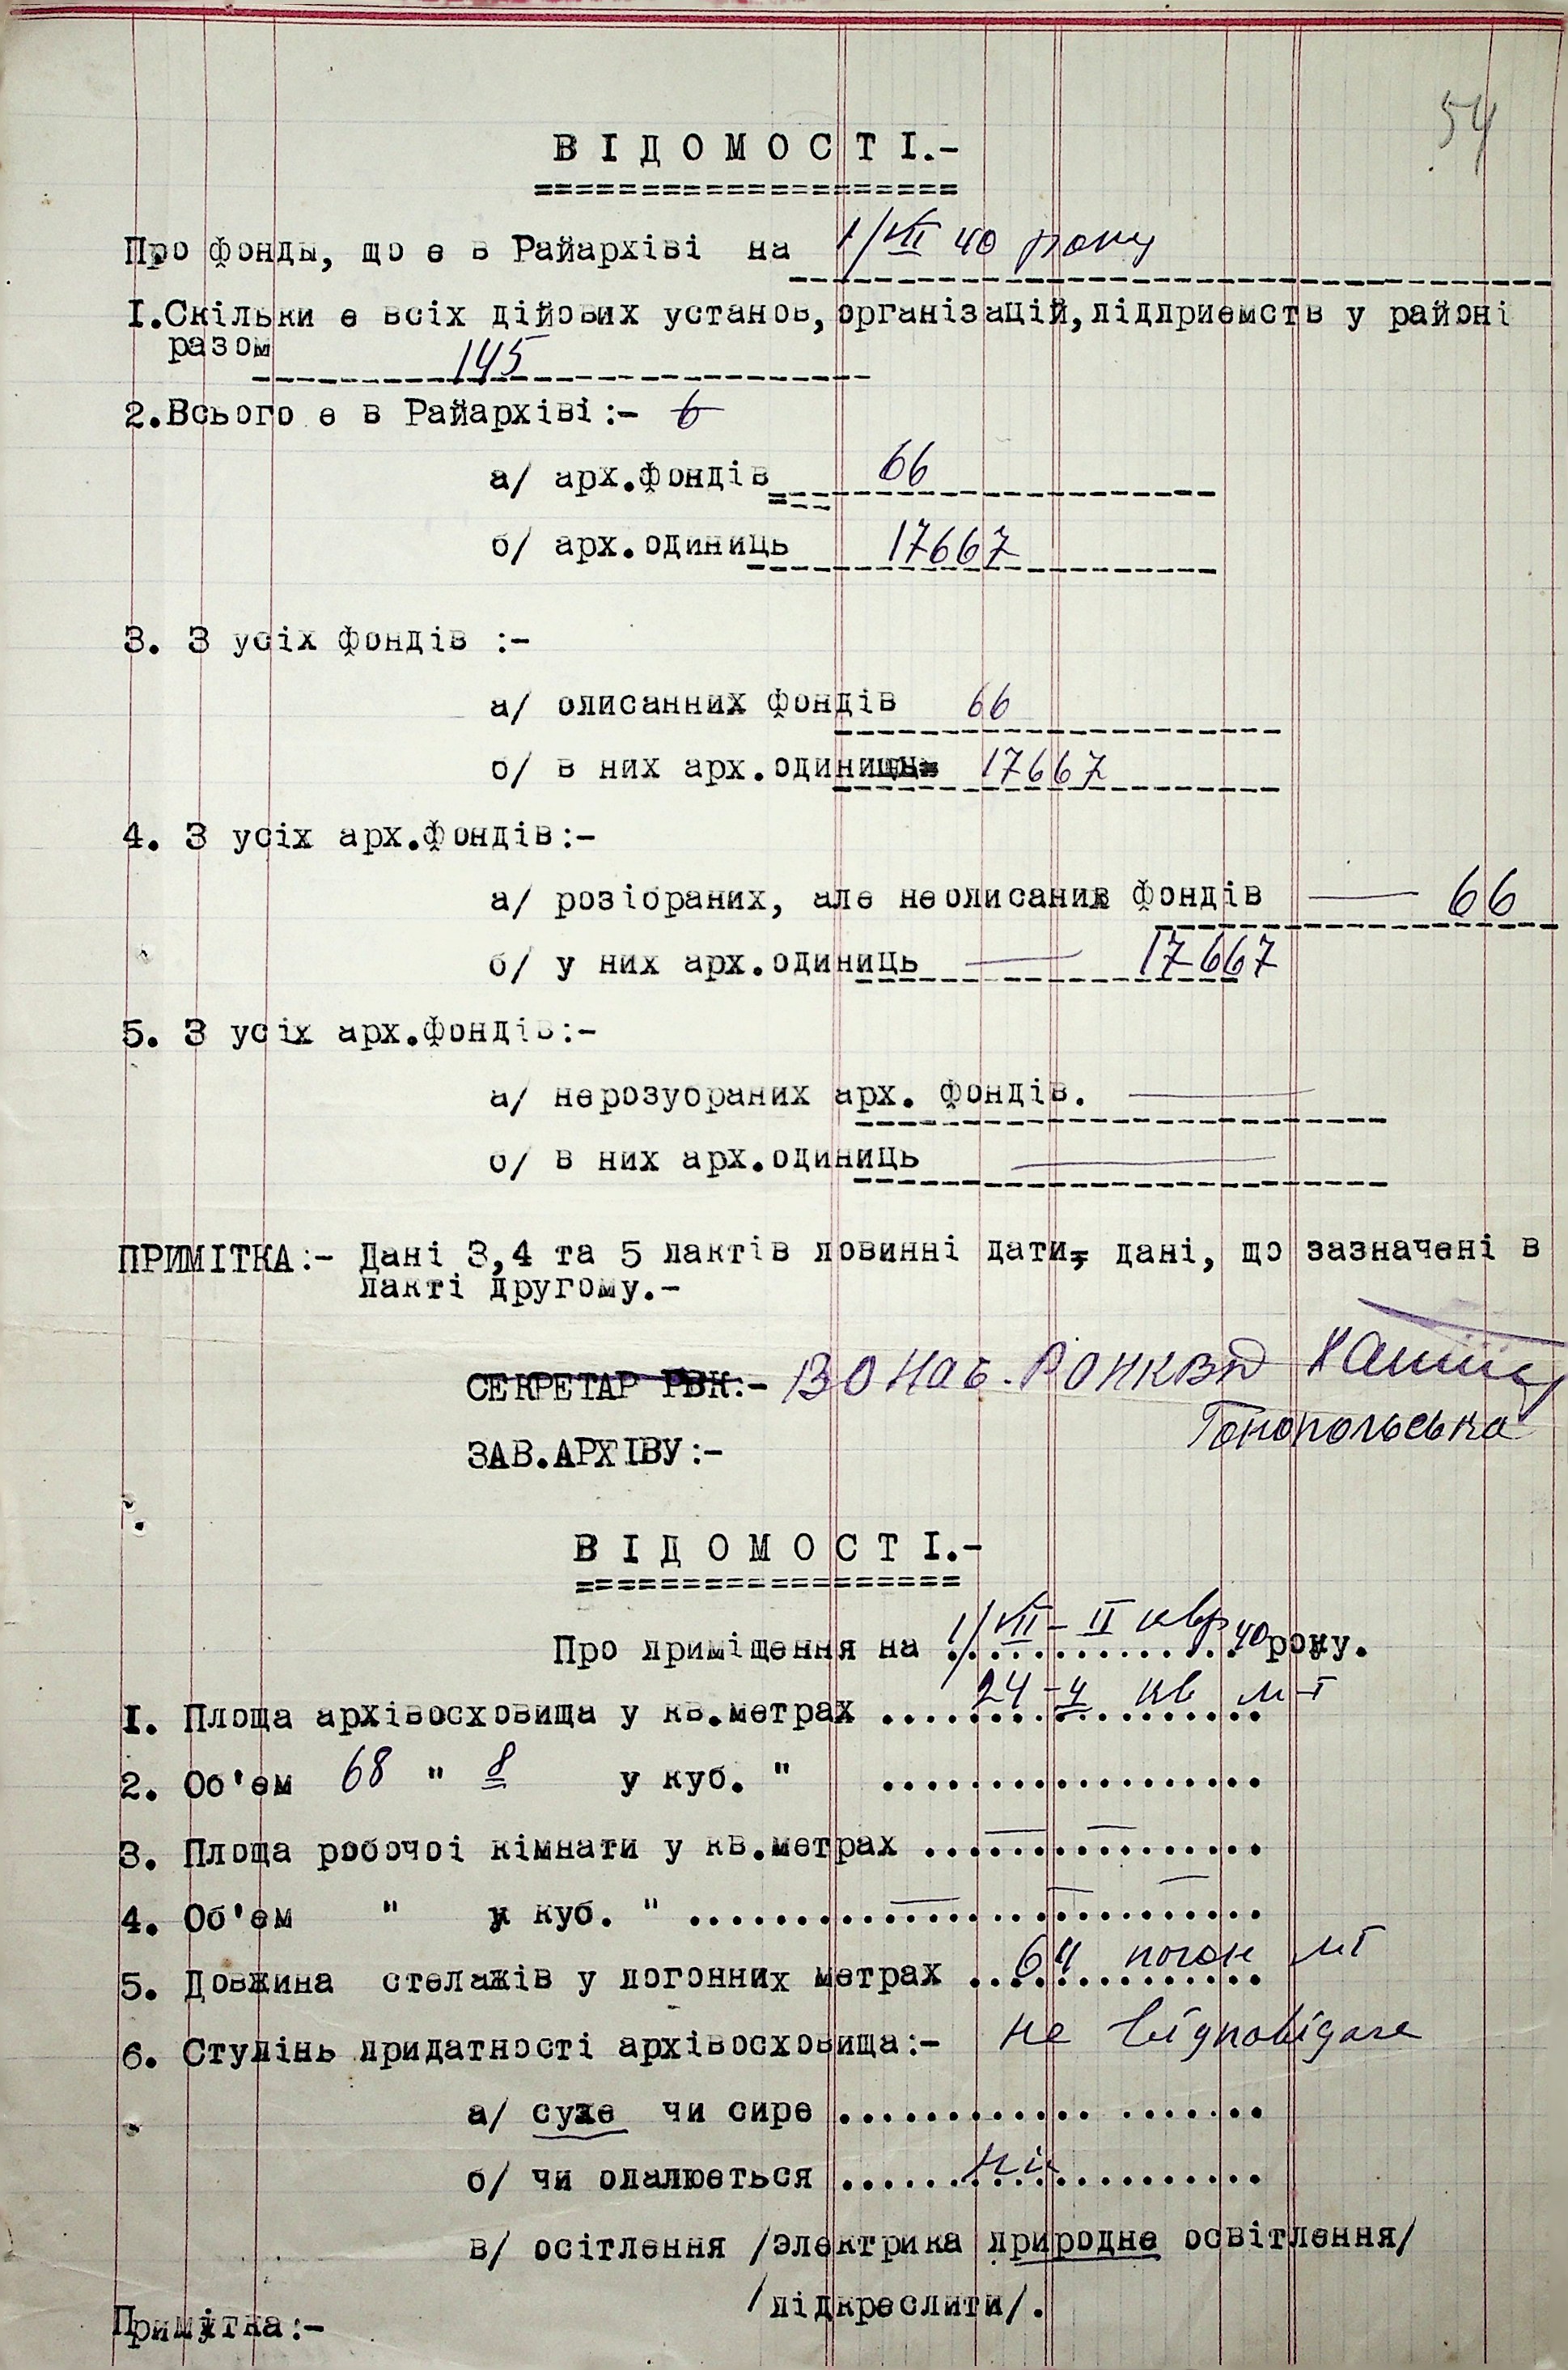 54
В І Д О М О С Т І.-
====================
Про фонды, що є в Райархіві на 1/VII 40 року
I.Скільки є всіх дійових установ,організацій,підприємств у районі
разом 145
2.Всього є в Райархіві:- 6
а/ арх.фондів 66
б/ арх.одиниць 17667
3. З усіх фондів :-
а/ описанних фондів 66
б/ в них арх.одиниць 17667
4. З усіх арх.фондів:-
а/ розібраних, але неописаних фондів — 66
б/ у них арх.одиниць — 17667
5. З усіх арх.фондів:-
а/ нерозубраних арх. фондів. —
б/ в них арх.одиниць —
ПРИМІТКА:- Дані 3,4 та 5 пактів повинні дати, дані, що зазначені в
пакті другому.-
СЕКРЕТАР РВК:- ВО Нач. РО НКВД
ЗАВ.АРХІВУ:-
В І Д О М О С Т І.-
==================
Про приміщення на 1/VII – II квр 40 року.
I. Площа архівосховища у кв.метрах 24 – 4 кв м-т
2. Об'єм 68 " 8 у куб. " ..................
3. Площа робочоі кімнати у кв.метрах ................
4. Об'єм " у куб. " ...........................
5. Довжина стелажів у погонних метрах 64 погон мт
6. Ступінь придатності архівосховища:- не відповідає
а/ сухе чи сире ............ .......
б/ чи опалюеться ні
в/ осітлення /электрика природне освітлення/
/підкреслити/.
Примітка:-